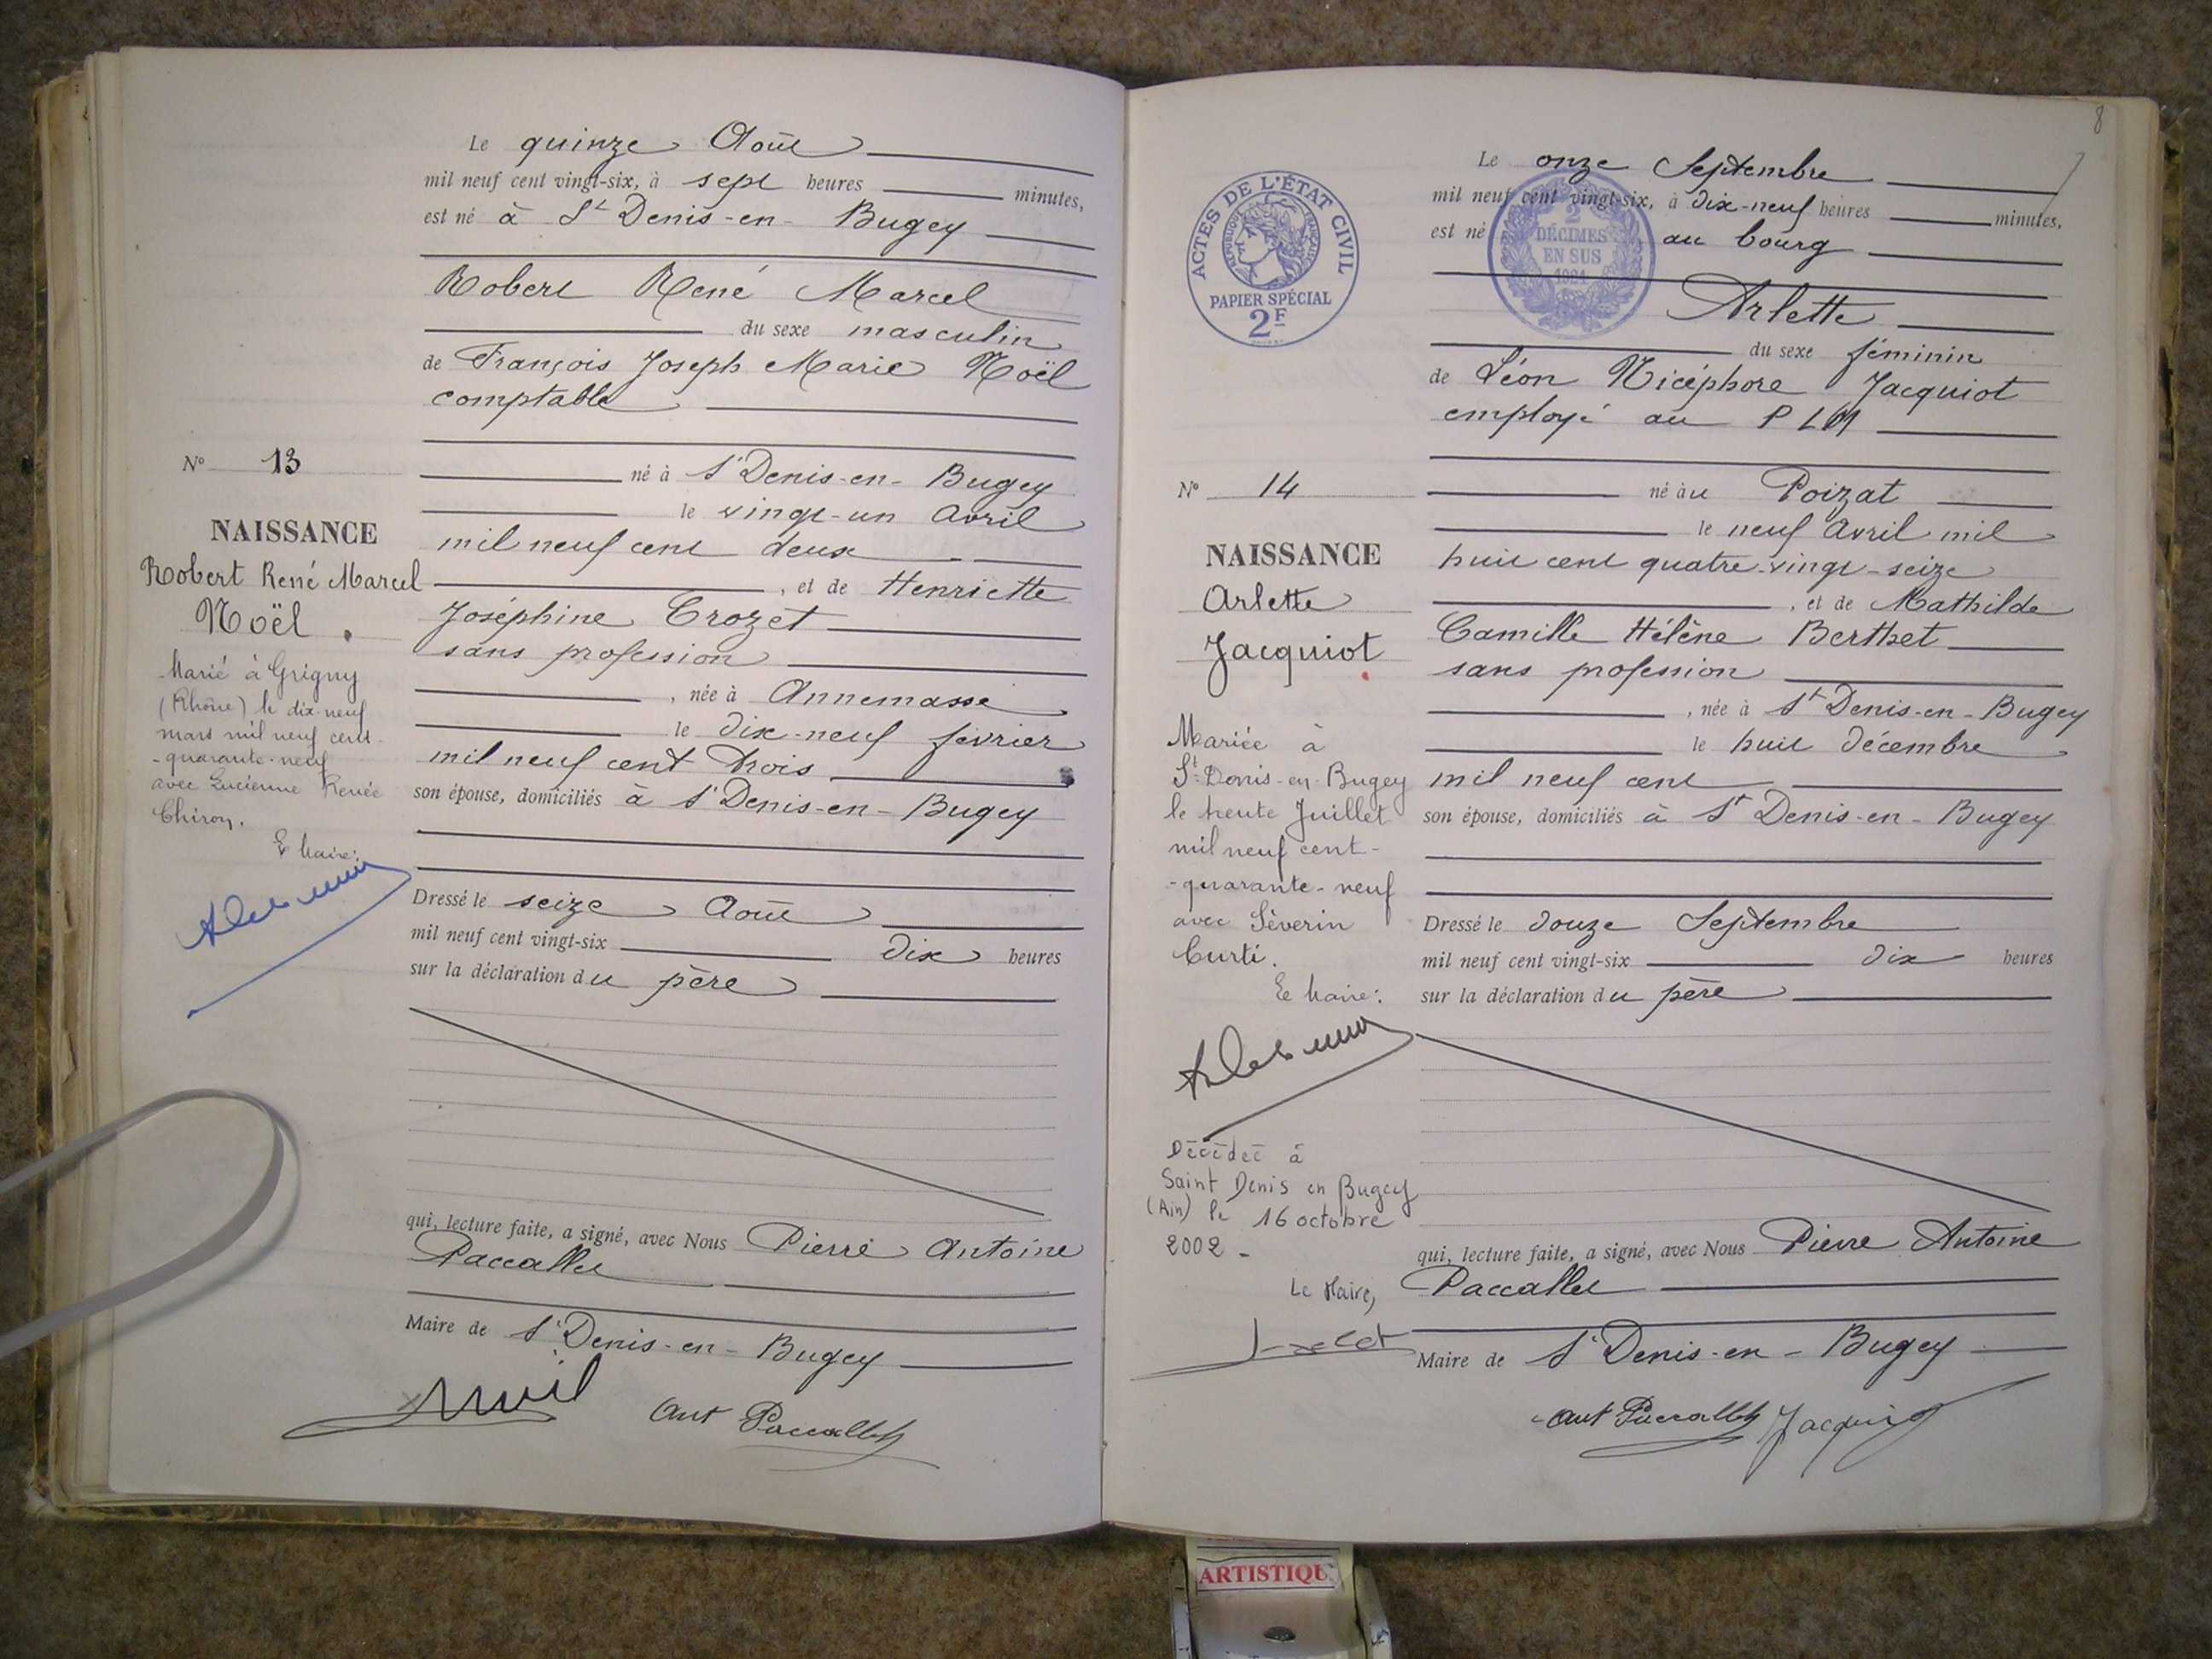 Le quinze Août
mil neuf cent vingt-six, à sept heures minutes,
est né à St Denis-en-Bugey
Robert René Marcel
du sexe masculin
de François Joseph Marie Noël
comptable
né à St Denis-en-Bugey
le vingt-un Avril
mil neuf cent deux
, et de Henriette
Joséphine Crozet
sans profession
, née à Annemasse
le dix-neuf février
mil neuf cent trois
son épouse, domiciliés à St Denis-en-Bugey
Dressé le seize Août
mil neuf cent vingt-six dix heures
sur la déclaration du père
qui, lecture faite, a signé, avec Nous Pierre Antoine
Paccallet
Maire de St Denis-en-Bugey
Ant Paccallet
No 13
NAISSANCE
Robert René Marcel
Noël
Marié à Grigny
(Rhône) le dix-neuf
mars mil neuf cent-
-quarante-neuf
avec Lucienne Renée
Chiron.
Le Maire:
8
ACTES DE L'ÉTAT CIVIL
RÉPUBLIQUE FRANÇAISE
PAPIER SPÉCIAL
2F
2
DÉCIMES
EN SUS
Le onze Septembre
mil neuf cent vingt-six, à dix-neuf heures minutes,
est né au bourg
Arlette
du sexe féminin
de Léon Nicéphore Jacquiot
employé au PLM
né au Poizat
le neuf Avril mil
huit cent quatre-vingt-seize
, et de Mathilde
Camille Hélène Berthet
sans profession
, née à St Denis-en-Bugey
le huit décembre
mil neuf cent
son épouse, domiciliés à St Denis-en-Bugey
Dressé le douze Septembre
mil neuf cent vingt-six dix heures
sur la déclaration du père
qui, lecture faite, a signé, avec Nous Pierre Antoine
Paccallet
Maire de St Denis-en-Bugey
Ant Paccallet Jacquiot
No 14
NAISSANCE
Arlette
Jacquiot
Mariée à
St-Denis-en-Bugey
le trente Juillet
mil neuf cent-
-quarante-neuf
avec Séverin
Curti.
Le Maire:
Décédée à
Saint Denis en Bugey
(Ain) le 16 octobre
2002 -
Le Maire,
ARTISTIQU